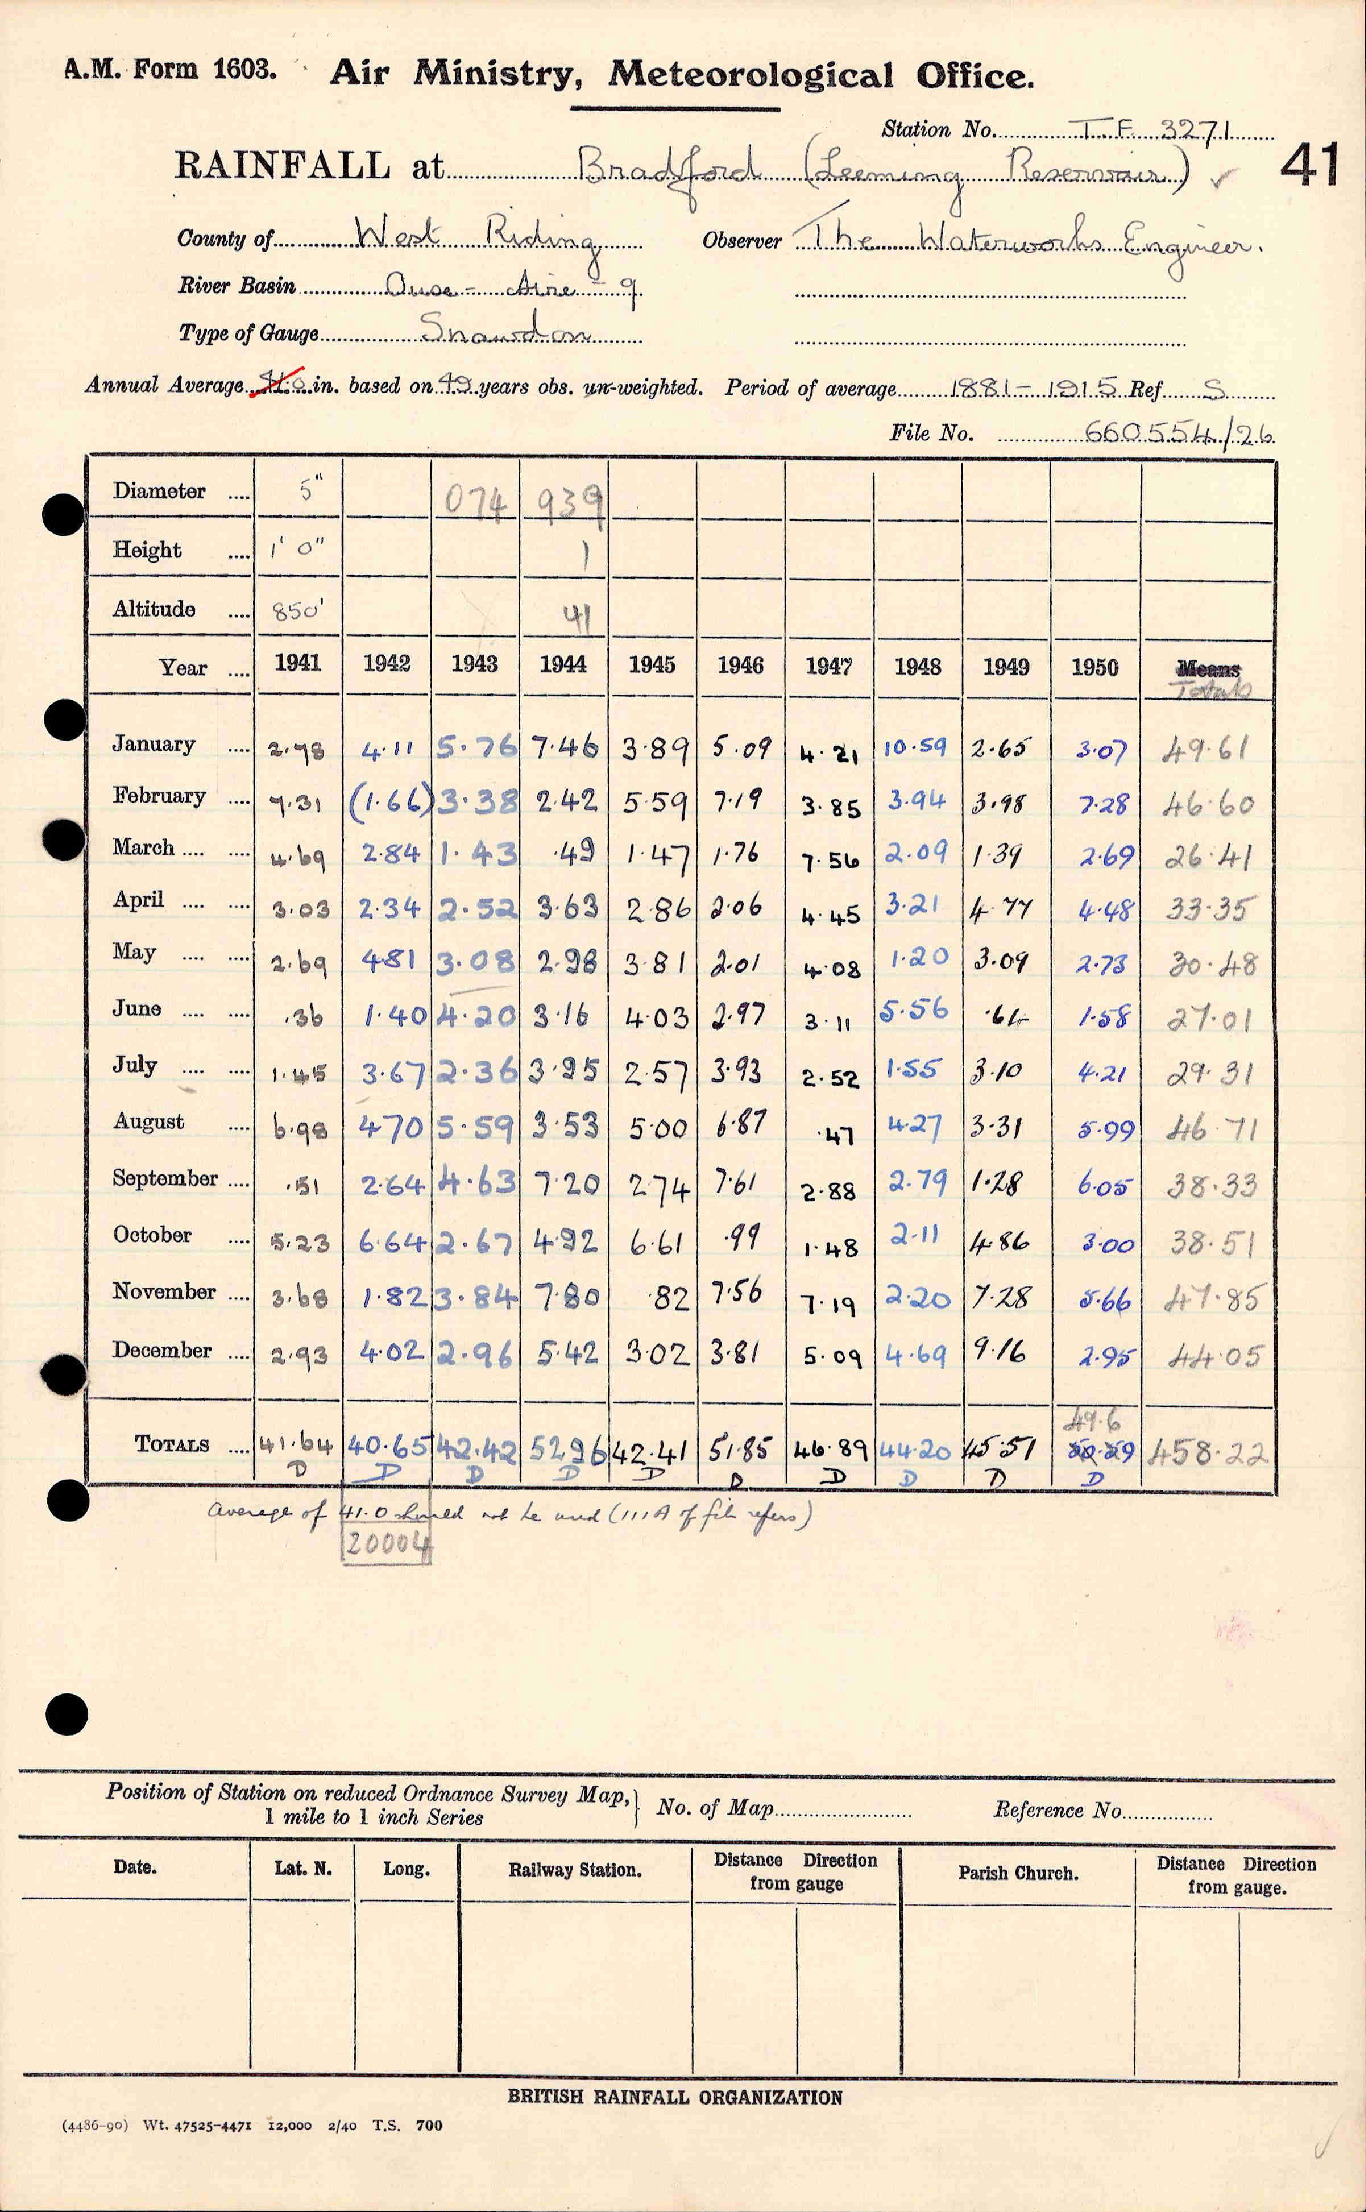 A.M. Form 1603. Air Ministry, Meteorological Office.
Station No. T.F. 3271
41
RAINFALL at Bradford (Leeming Reservoir) ✓
County of West Riding Observer The Waterworks Engineer.
River Basin Ouse - Aire - 9
Type of Gauge Snowdon
Annual Average 41.0 in. based on 49 years obs. un-weighted. Period of average 1881 - 1915 Ref. S
File No. 660554/26
Diameter .... 5" 074 939
Height .... 1' 0" 1
Altitude .... 850' 41
Year .... 1941 1942 1943 1944 1945 1946 1947 1948 1949 1950 Means
Totals
January .... 2.78 4.11 5.76 7.46 3.89 5.09 4.21 10.59 2.65 3.07 49.61
February .... 7.31 (1.66) 3.38 2.42 5.59 7.19 3.85 3.94 3.98 7.28 46.60
March .... .... 4.69 2.84 1.43 .49 1.47 1.76 7.56 2.09 1.39 2.69 26.41
April .... .... 3.03 2.34 2.52 3.63 2.86 2.06 4.45 3.21 4.77 4.48 33.35
May .... .... 2.69 4.81 3.08 2.98 3.81 2.01 4.08 1.20 3.09 2.73 30.48
June .... .... .36 1.40 4.20 3.16 4.03 2.97 3.11 5.56 .64 1.58 27.01
July .... .... 1.45 3.67 2.36 3.95 2.57 3.93 2.52 1.55 3.10 4.21 29.31
August .... 6.98 4.70 5.59 3.53 5.00 6.87 .47 4.27 3.31 5.99 46.71
September .... .51 2.64 4.63 7.20 2.74 7.61 2.88 2.79 1.28 6.05 38.33
October .... 5.23 6.64 2.67 4.92 6.61 .99 1.48 2.11 4.86 3.00 38.51
November .... 3.68 1.82 3.84 7.80 .82 7.56 7.19 2.20 7.28 5.66 47.85
December .... 2.93 4.02 2.96 5.42 3.02 3.81 5.09 4.69 9.16 2.95 44.05
49.6
TOTALS .... 41.64 40.65 42.42 52.96 42.41 51.85 46.89 44.20 45.51 50.29 458.22
D D D D D D D D D D
Average of 41.0 should not be used (111A of file refers)
20004
Position of Station on reduced Ordnance Survey Map, } No. of Map Reference No.
1 mile to 1 inch Series
Date. Lat. N. Long. Railway Station. Distance Direction from gauge Parish Church. Distance Direction from gauge.
BRITISH RAINFALL ORGANIZATION
(4486-90) Wt. 47525-4471 12,000 2/40 T.S. 700